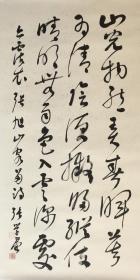 山光物態弄春暉莫
為輕陰便擬歸縱使
晴明無雨色入雲深處
亦霑衣 張旭山客詩